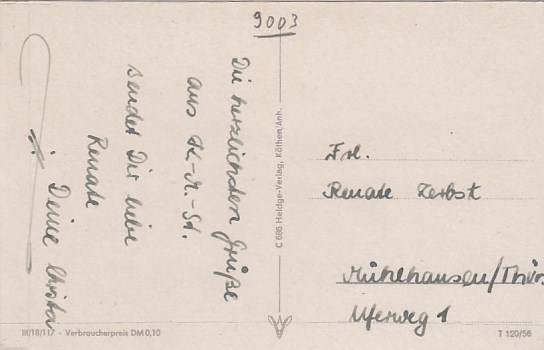 9003
Die herzlichsten Grüße
aus K.-M.-St.
sendet Dir liebe
Renate
Deine Christa
C 686 Heldge-Verlag, Köthen/Anh.
Frl.
Renate Zerbst
Mühlhausen/Thür.
Uferweg 1
III/18/117 - Verbraucherpreis DM 0,10
T 120/56